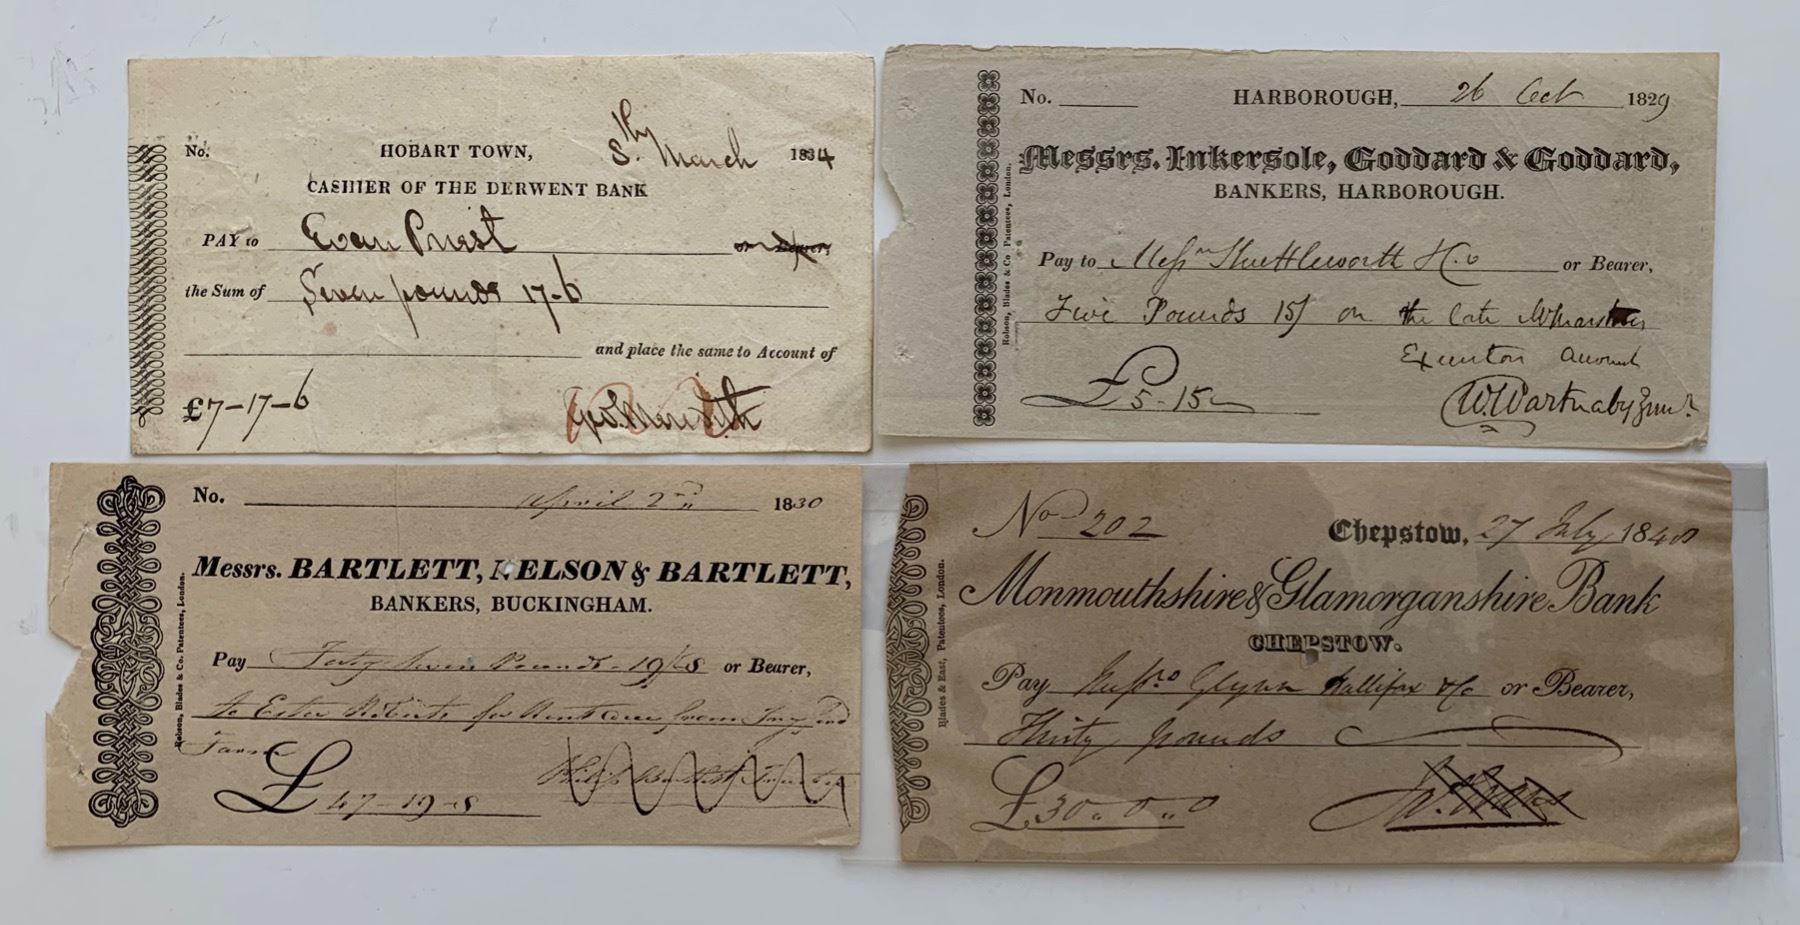 No.
HOBART TOWN, 8th March 1834
CASHIER OF THE DERWENT BANK
PAY to Evan Priest or Bearer,
the Sum of Seven pounds 17-6
and place the same to Account of
£7-17-6
Geo. Meredith
No. HARBOROUGH, 26 Oct 1829
Messrs. Inkersole, Goddard & Goddard,
BANKERS, HARBOROUGH.
Rolson, Blades & Co Patentees, London.
Pay to Messrs Shuttleworth & Co or Bearer,
Five Pounds 15/ on the late
Account
£5-15
W. Wartnaby Junr.
No. April 2nd 1830
Messrs. BARTLETT, NELSON & BARTLETT,
BANKERS, BUCKINGHAM.
Rolson, Blades & Co. Patentees, London.
Pay Forty Seven Pounds - 19 - 8 or Bearer,
to Ester Roberts for Rent due from
Farm
£47-19-8
No 202
Chepstow, 27 July 1840
Monmouthshire & Glamorganshire Bank
CHEPSTOW.
Blades & East, Patentees, London.
Pay Messrs Glynn Hallifax & Co or Bearer,
Thirty pounds
£30-0-0